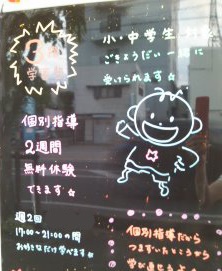 小・中学生
ごきょうだい一緒に
受けられます☆
個別指導
2週間
無料体験
できます☆
週2回
17:00〜21:00の間
お好きなだけ学べます☆
個別指導だから
つまずいたところから